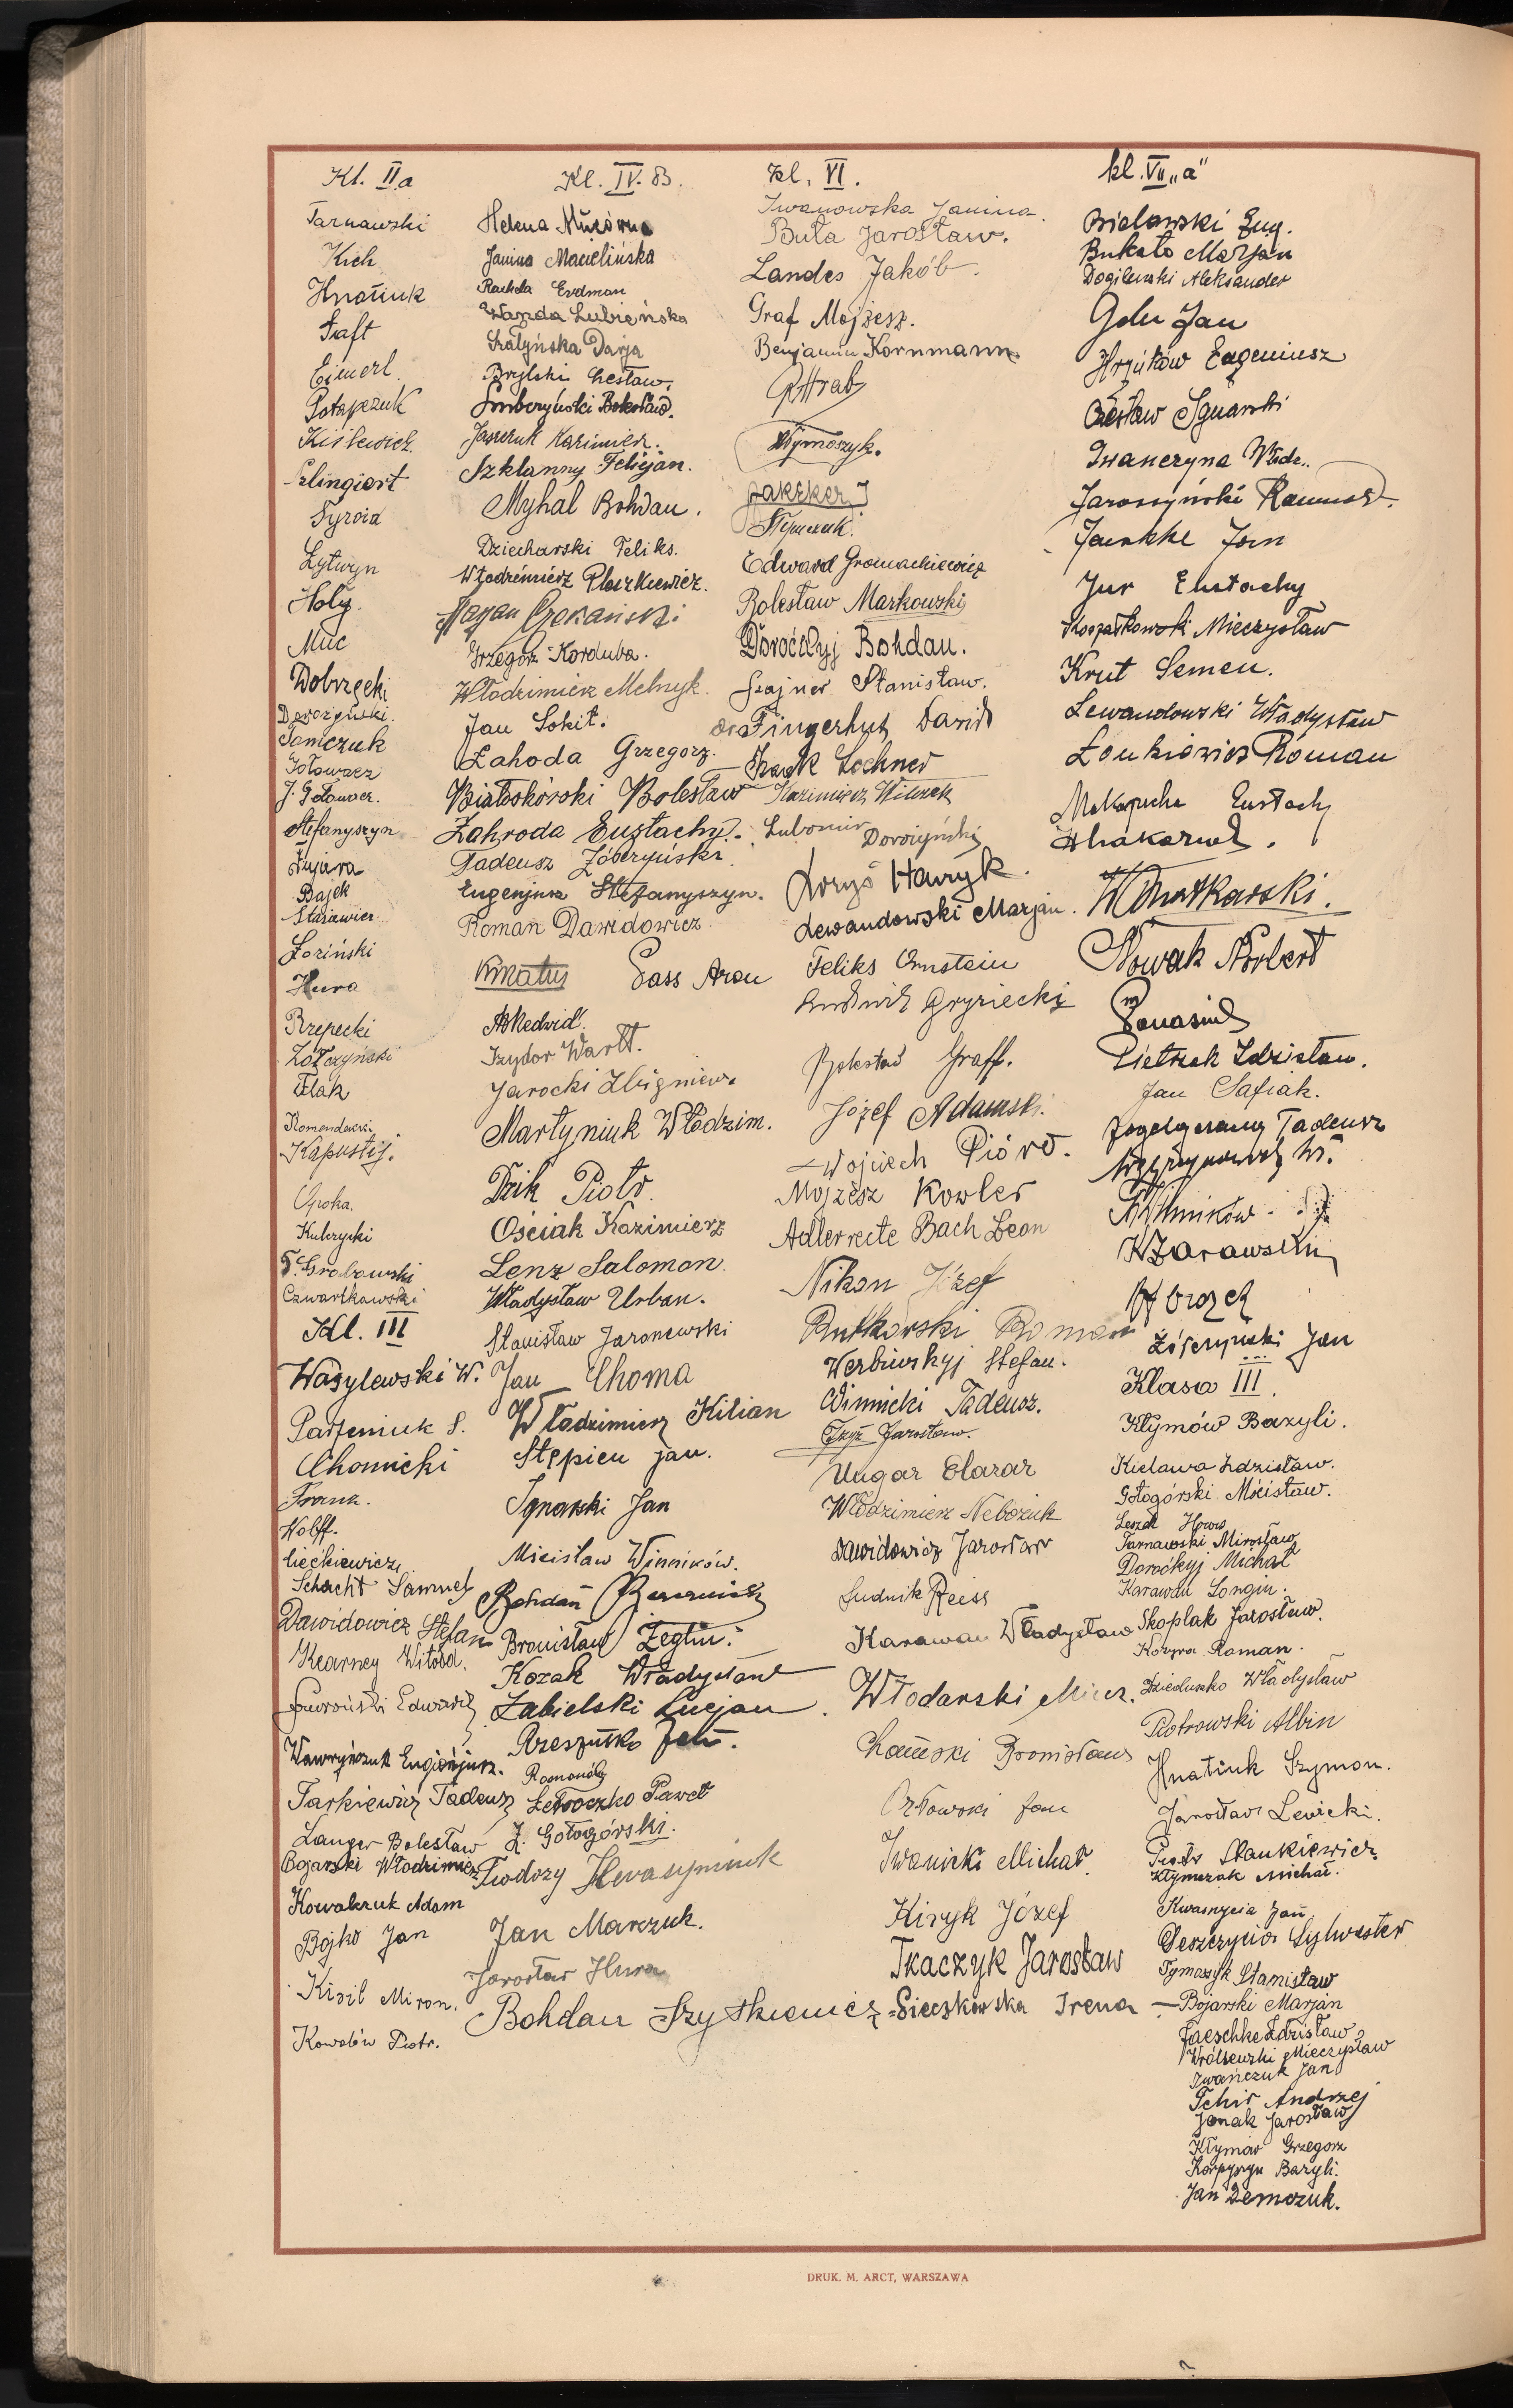 Kl. II a
Tarnawski
Kich
Hnatiuk
Taft
Eimerl
Potapczuk
Kiślewicz
Szlingiert
Syroid
Łytwyn
Hoły.
Muc
Dobrzęcki
Dorożyński.
Tomczuk
Gołowacz
J. Gołowacz.
Stefanyszyn
Fujara
Bajek
Staniewicz
Łoziński
Hura
Rzepecki
Żółczyński
Flak
Romendowski
Kapustij.
Opoka.
Kulczycki
T. Grabowski
Czwartkowski
Kl. III
Wasylewski W.
Parfeniuk S.
Chomicki
Frank.
Wolff.
Ciećkiewicz
Schacht Samuel
Dawidowicz Stefan
Kearney Witold.
Edward
Wawryńczuk Eugenjusz.
Tarkiewicz Tadeusz
Langer Bolesław
Bojarski Włodzimierz
Kowalczuk Adam
Bojko Jan
Kizil Miron.
Kowalów Piotr.
Kl. IV. B.
Helena
Janina Macielińska
Rachela Erdman
Wanda Lubieńska
Szałyńska Darja
Brylski Czesław.
Bolesław.
Jaszczuk Kazimierz.
Szklanny Felicjan.
Myhal Bohdan.
Dziecharski Feliks.
Włodzimierz Pleszkiewicz.
Grzegorz Korduba.
Włodzimierz Melnyk.
Jan Sokit.
Łahoda Grzegorz.
Białoskórski Bolesław
Zahroda Eustachy.
Tadeusz Żółczyński.
Eugenjusz Stefanyszyn.
Roman Dawidowicz.
Kmatus Gass Aron
Izydor Wartt.
Jarocki Zbigniew.
Martyniuk Włodzim.
Dzik Piotr.
Ościak Kazimierz
Lenz Salomon.
Władysław Urban.
Stanisław Jaroniewski
Jan Choma
Włodzimierz Kilian
Stępien Jan.
Ignarski Jan
Micisław Winników.
Bohdan
Bronisław Żeglin.
Kozak Władysław
Zabielski Lucjan.
Rzeszutko Jan.
Roman
Paweł
Z. Gołogórski.
Teodozy Herasymiuk
Jan Marczuk.
Jarosław Hura
Bohdan Szytkiewicz
kl. VI.
Iwanowska Janina.
Buła Jarosław.
Landes Jakób.
Graf Mojżesz.
Benjamin Kornmann
RHrab
Tymoszyk.
Edward Gromachiewicz
Bolesław Markowski
Doroćkyj Bohdan.
Szajner Stanisław.
Fingerhut Dawid
Lechner
Kazimierz Witczak
Lubomir Dorożyński
Łoryś Henryk.
Lewandowski Marjan.
Feliks Ornstein
Ludwik Gryziecki
Bolesław Graff.
Józef Adamski.
Wojciech Pióro.
Mojżesz Kowler
Adler recte Bach Leon
Nikon Józef
Rutkowski Roman
Werbiwskyj Stefan.
Winnicki Tadeusz.
Czyż Jarosław.
Ungar Elazar
Włodzimierz Nebożuk
Dawidowicz Jarosław
Ludwik Reiss
Karawan Władysław
Włodarski Miecz.
Bronisław
Orłowski Jan
Iwanicki Michał.
Kiryk Józef
Tkaczyk Jarosław
Sieczkowska Irena
kl. VII „a"
Bielawski Eug.
Bukało Marjan
Dogilewski Aleksander
Golu Jan
Hrycków Eugeniusz
Czesław Ignarski
Iwanczyna Włodz.
Jaroszyński Romuald.
Jaeschke Jan
Jur Eustachy
Koszałkowski Mieczysław
Krut Semen.
Lewandowski Władysław
Łoukiewicz Roman
Makapucha Eustachy
Nowak Norbert
Panasiuk
Pietrzak Zdzisław.
Jan Safiak.
Tadeusz
Winników.
KŻarawski
Żółczyński Jan
Klasa III.
Kłymów Bazyli.
Kielawa Zdzisław.
Gołogórski Mścisław.
Leszek
Tarnawski Mirosław
Doroćkyj Michał
Karawan Longin.
Skoplak Jarosław.
Kozyra Roman.
Dzieduszko Władysław
Piotrowski Albin
Hnatiuk Szymon.
Jarosław Lewicki.
Piotr Stankiewicz
Kłymczuk Michał.
Kwasnycia Jan
Deszczycia Sylwester
Tymoszyk Stanisław
Bojarski Marjan
Jaeschke Zdzisław
Wróblewski Mieczysław
Iwańczuk Jan
Tchir Andrzej
Jonak Jarosław
Kłymów Grzegorz
Karpyszyn Bazyli.
Jan Demczuk.
DRUK. M. ARCT, WARSZAWA